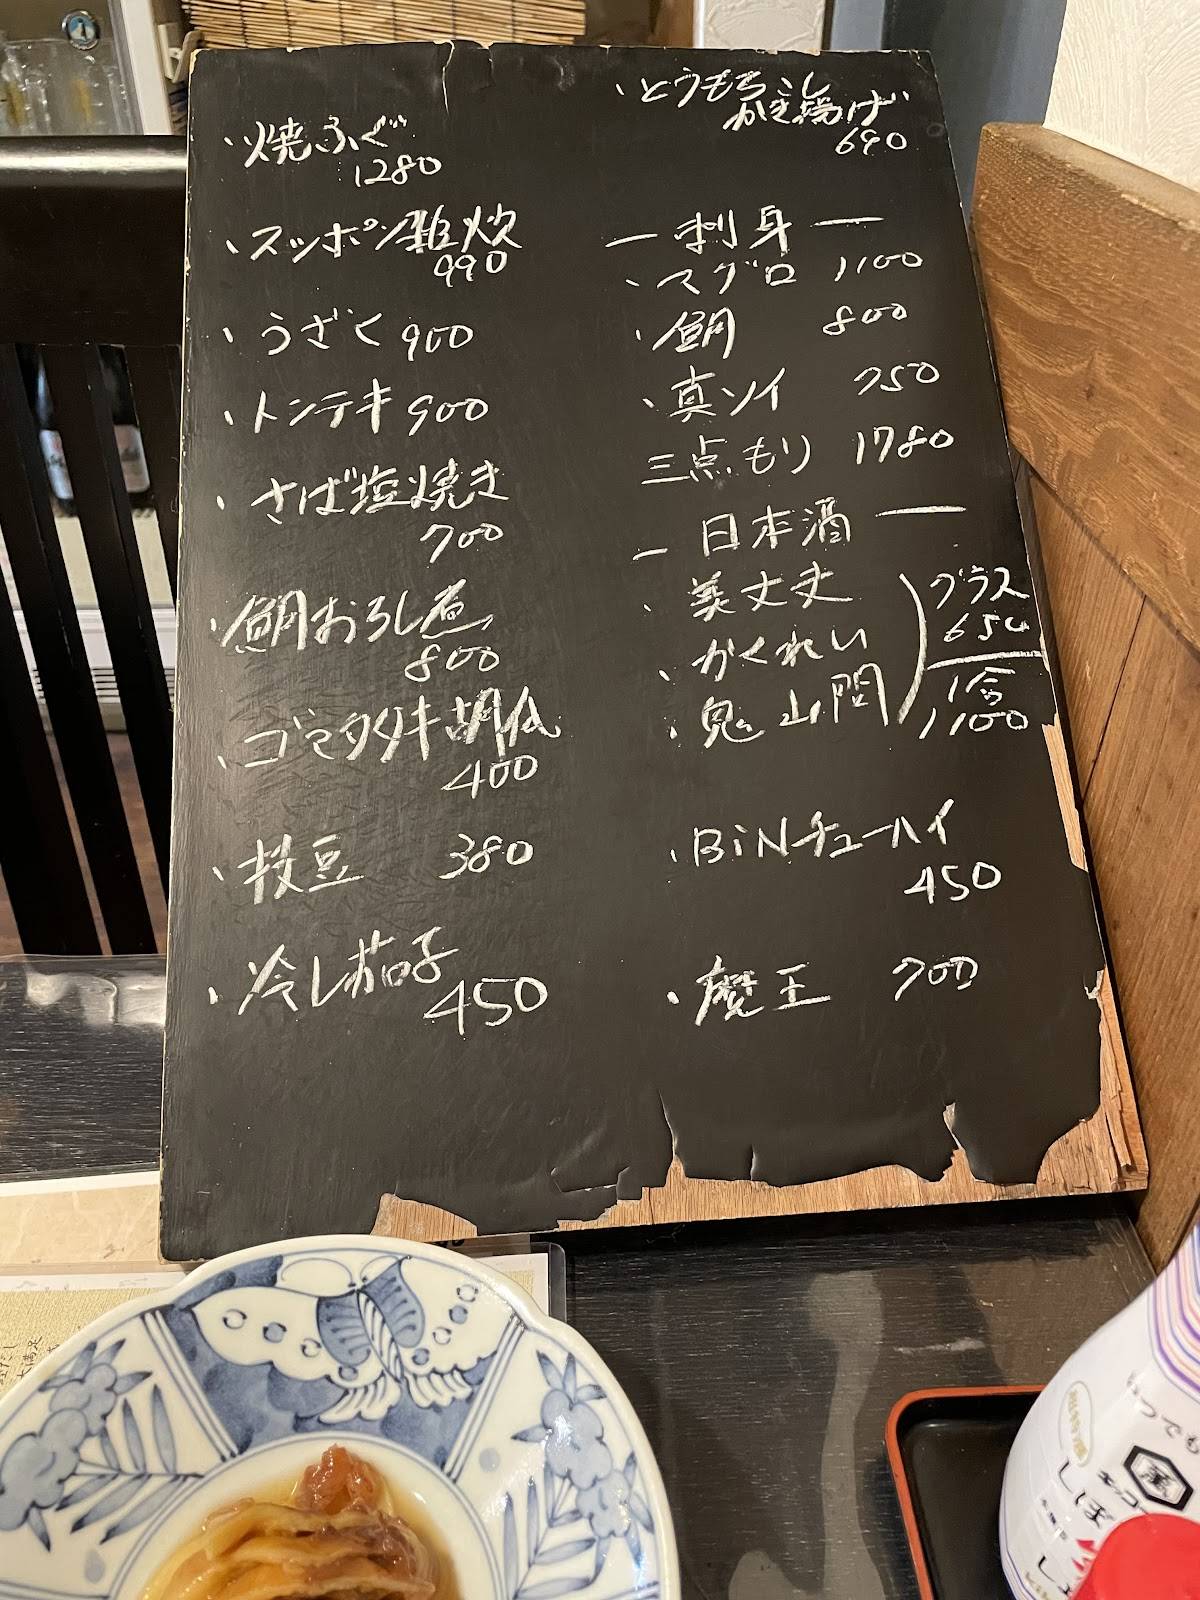 ・焼ふぐ
1280
・スッポン雑炊
990
・うざく 900
・トンテキ 900
・さば塩焼き
700
・鯛おろし煮
800
・ゴマタタキ胡瓜
400
・枝豆 380
・冷し茄子
450
・とうもろこし
かき揚げ
690
ー刺身ー
・マグロ 1100
・鯛 800
・真ソイ 750
三点もり 1780
ー日本酒ー
・美丈夫
・かくれい
・鬼山間
グラス
650
1合
1100
・BiNチューハイ
450
・魔王 700
いつでも
しぼ
大満足